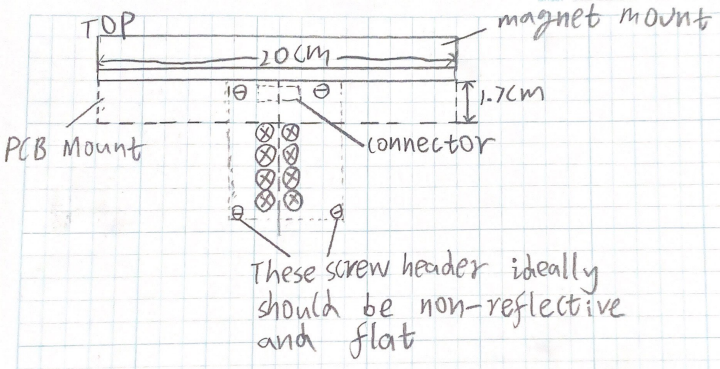 TOP
magnet mount
20cm
1.7cm
PCB Mount
connector
These screw header ideally
should be non-reflective
and flat